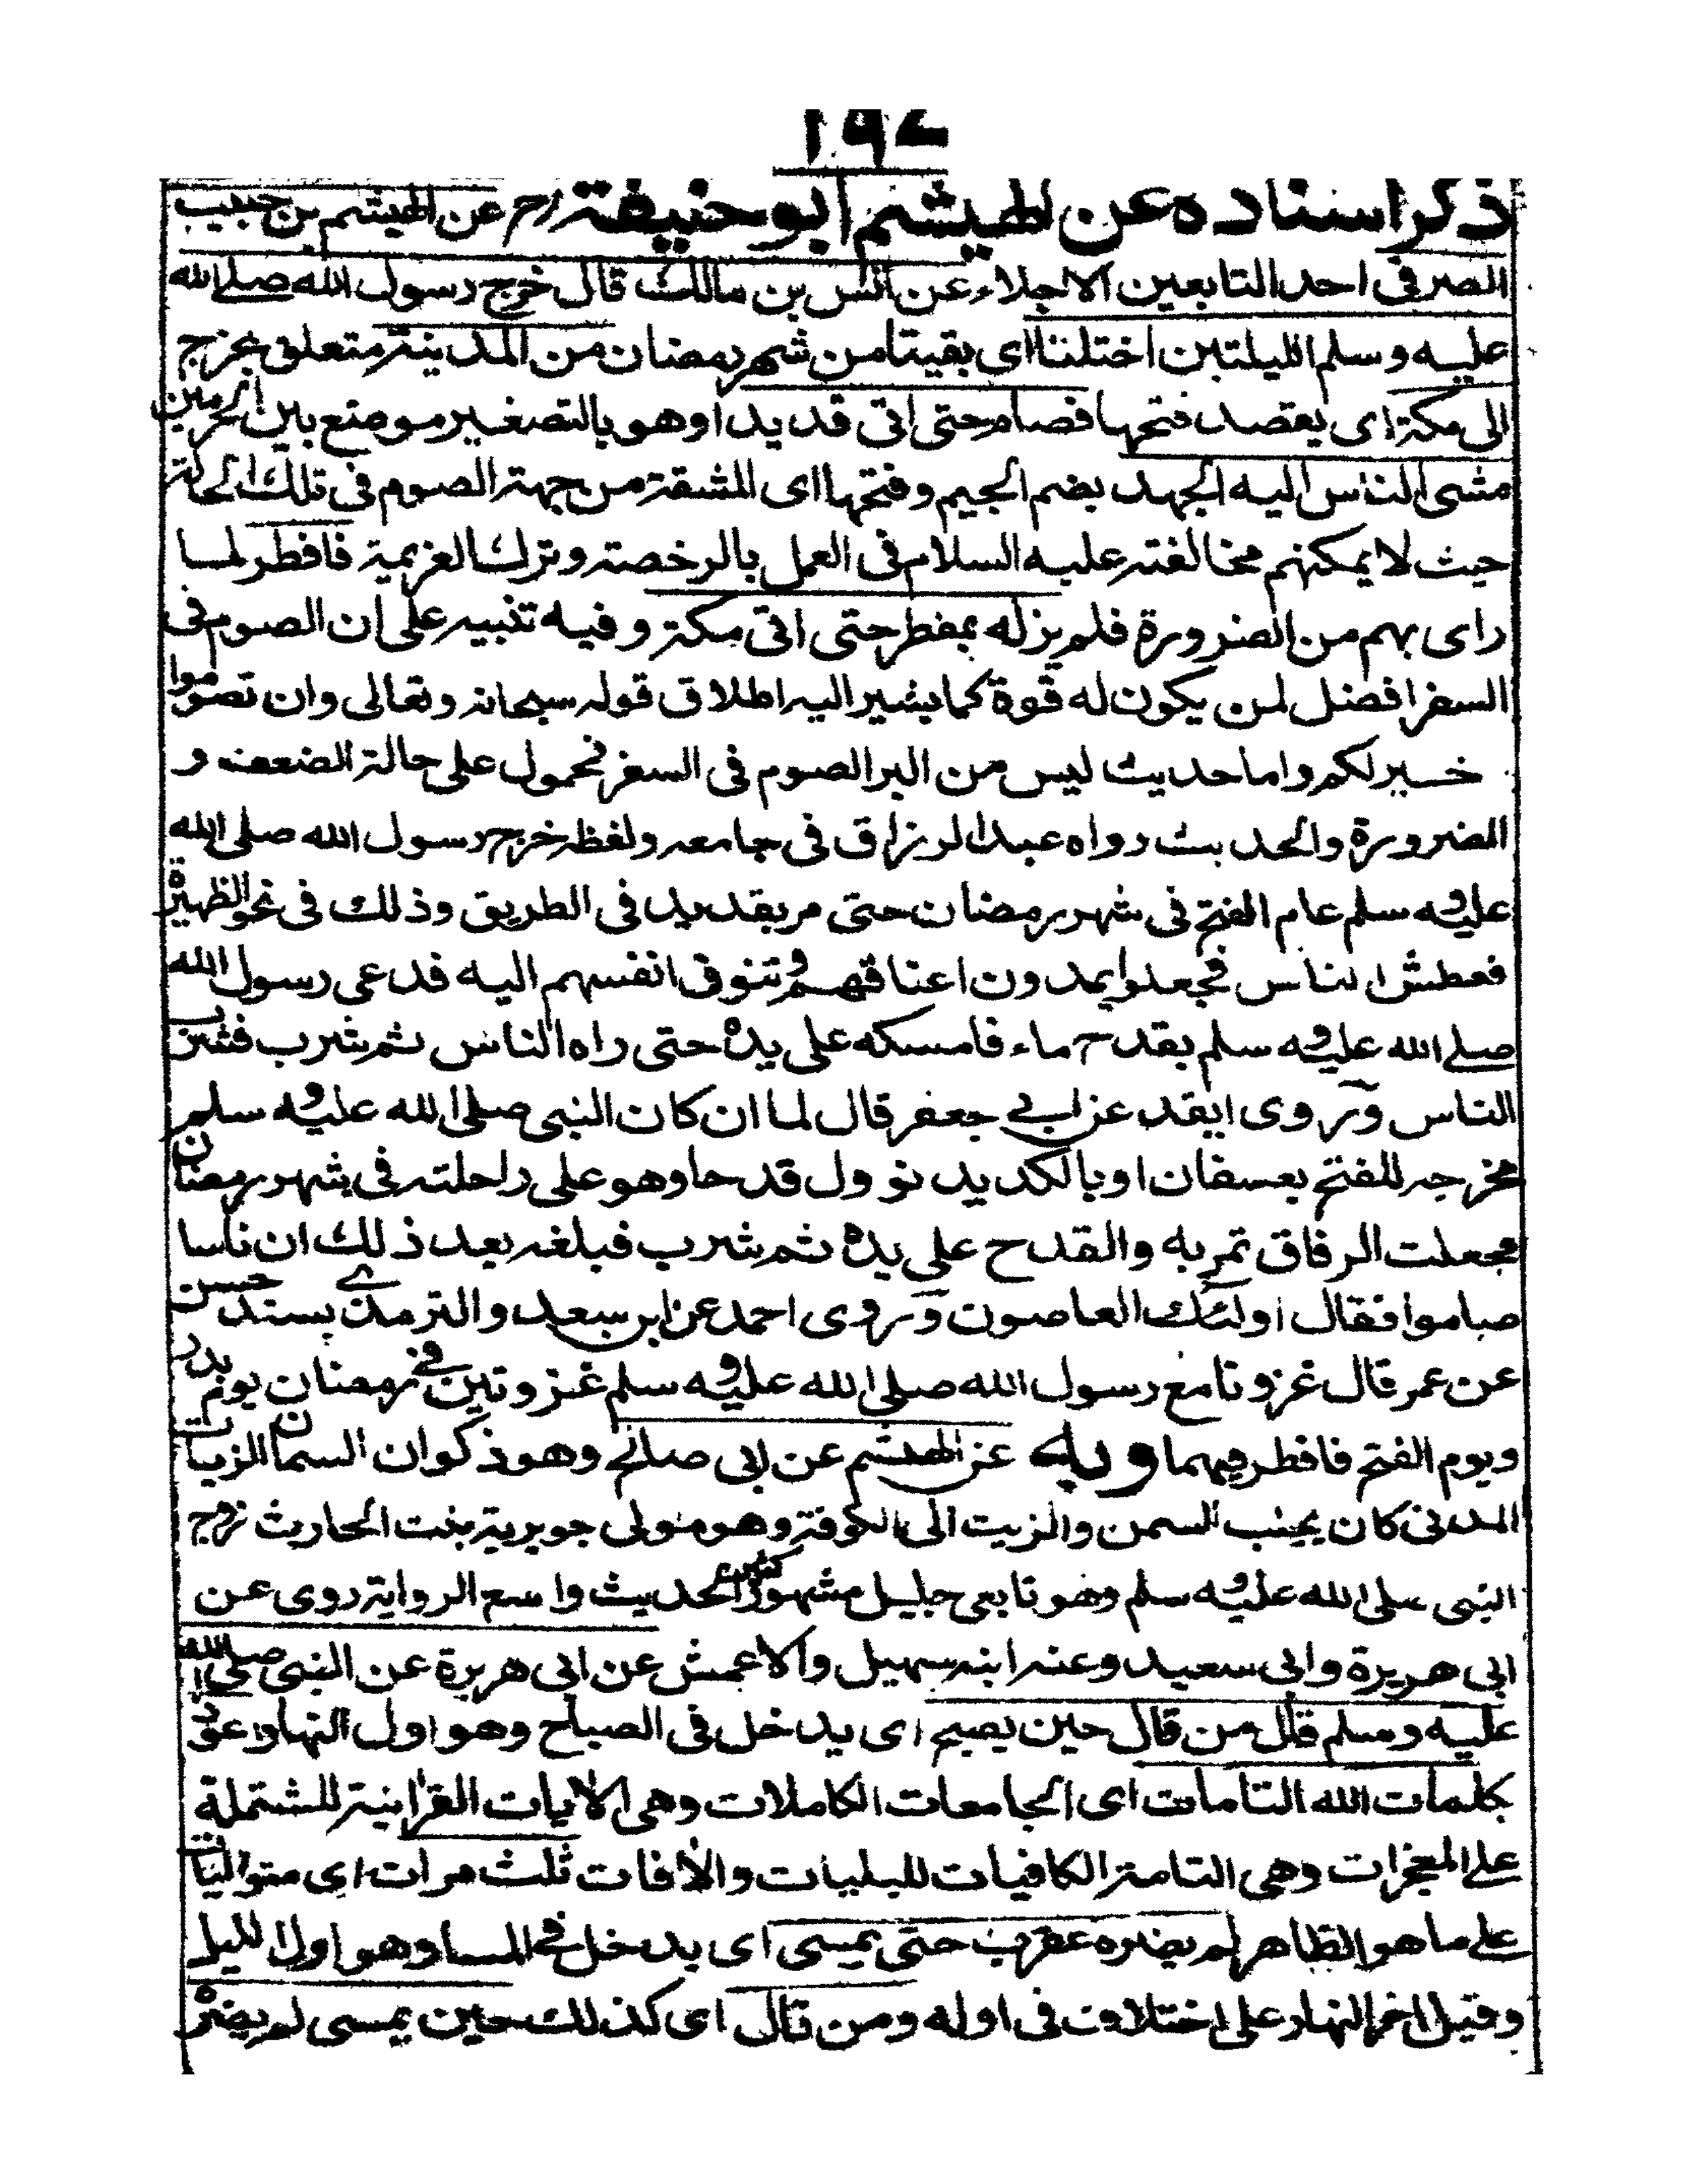 ١٩٤
ذكر اسناده عن الهيثم ابو حنيفة رح عن الهيثم بن حبيب
الصرفى احد التابعين الاجلاء عن انس بن مالك قال خرج رسول الله صلے الله
عليه وسلم لليلتين اختلنا اى بقيتا من شهر رمضان من المدينة متعلق بخرج
الى مكة اى يقصد فتحها فصام حتى اتى قديدا وهو بالتصغير موضع بين الحرمين
مشى الناس اليه الجهد بضم الجيم وفتحها اى المشقة من جهة الصوم فى تلك الحالة
حيث لا يمكنهم مخالفته عليه السلام فى العمل بالرخصة وترك العزيمة فافطر لما
راى بهم من الضرورة فلم يزله بمفطر حتى اتى مكة وفيه تنبيه على ان الصوم فى
السفر افضل لمن يكون له قوة كما يشير اليه اطلاق قوله سبحانه وتعالى وان تصوموا
خير لكم واما حديث ليس من البر الصوم فى السفر فحمول على حالة الضعف و
الضرورة والحديث رواه عبد الرزاق فى جامعه ولفظه خرج رسول الله صلى الله
عليه وسلم عام الفتح فى شهر رمضان حتى مر بقديد فى الطريق وذلك فى نحو الظهيرة
فعطش الناس فجعلوا يمدون اعناقهم وتتوق انفسهم اليه فدعى رسول الله
صلے الله عليه وسلم بقدح ماء فامسكه على يده حتى راه الناس ثم شرب فشرب
الناس وروى ايقد عن ابے جعفر قال لما ان كان النبى صلى الله عليه وسلم
مخرجه للفتح بعسفان او بالكديد نوول قدحا وهو على راحلته فى شهر رمضان
فجعلت الرفاق تمر به والقدح على يده ثم شرب فبلغه بعد ذلك ان ناسا
صاموا فقال اولئك العاصون وروى احمد عن ابن سعد والترمذے بسند حسن
عن عمر قال غزونا مع رسول الله صلى الله عليه وسلم غزوتين فے رمضان يوم بدر
ويوم الفتح فافطر فيهما وبه عن الهيثم عن ابى صالح وهو ذكوان السمان الزيات
المدنى كان يجلب السمن والزيت الى الكوفة وهو مولى جويرية بنت الحارث زوج
النبى صلى الله عليه وسلم وهو تابعى جليل مشهور كثير الحديث واسع الرواية روى عن
ابى هريرة وابى سعيد وعنه ابنه سهيل والاعمش عن ابى هريرة عن النبى صلى الله
عليه وسلم قال من قال حين يصبح اى يدخل فى الصباح وهو اول النهار اعوذ
بكلمات الله التامات اى الجامعات الكاملات وهى الايات القرانية للشتملة
علے المعجزات وهى التامة الكافيات للبليات والافات ثلث مرات اى متواليات
علے ما هو الظاهر لم يضره عقرب حتى يمسى اى يدخل فے المسا وهو اول الليل
وقيل اخر النهار على اختلاف فى اوله ومن قال اى كذلك حين يمسى لم يضره